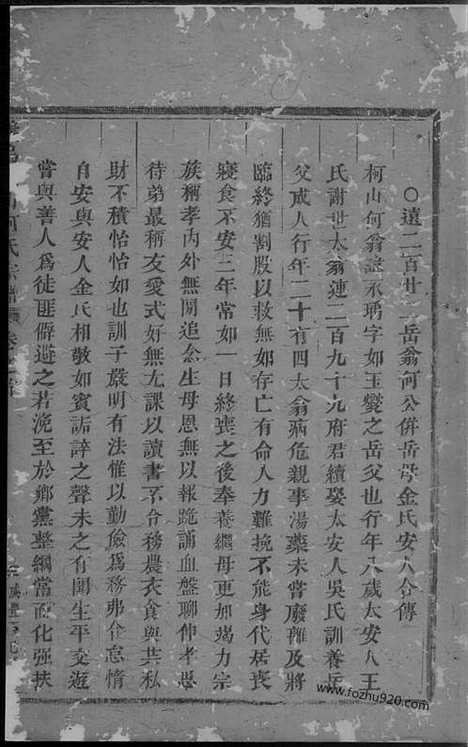 ○遠二百廿二岳翁何公併岳母金氏安人合傳
柯山何翁諱承瑀字如玉燮之岳父也行年八歲太安人王
氏謝世太翁連二百九十九府君續娶太安人吳氏訓養岳
父成人行年二十有四太翁病危親事湯藥未嘗廢離及將
臨終猶割股以救無如存亡有命人力難挽不能身代居喪
寢食不安三年常如一日終喪之後奉養繼母更加竭力宗
族稱孝內外無間追念生母恩無以報跪誦血盤聊伸孝思
待弟最稱友愛式好無尤課以讀書不令務農衣食與共私
財不積怡怡如也訓子嚴明有法惟以勤儉為務弗令怠惰
自安與安人金氏相敬如賓詬誶之聲未之有聞生平交遊
嘗與善人為徒匪僻避之若浼至於鄉黨整綱常而化强扶
何氏宗譜 卷
www.fozhu920.com